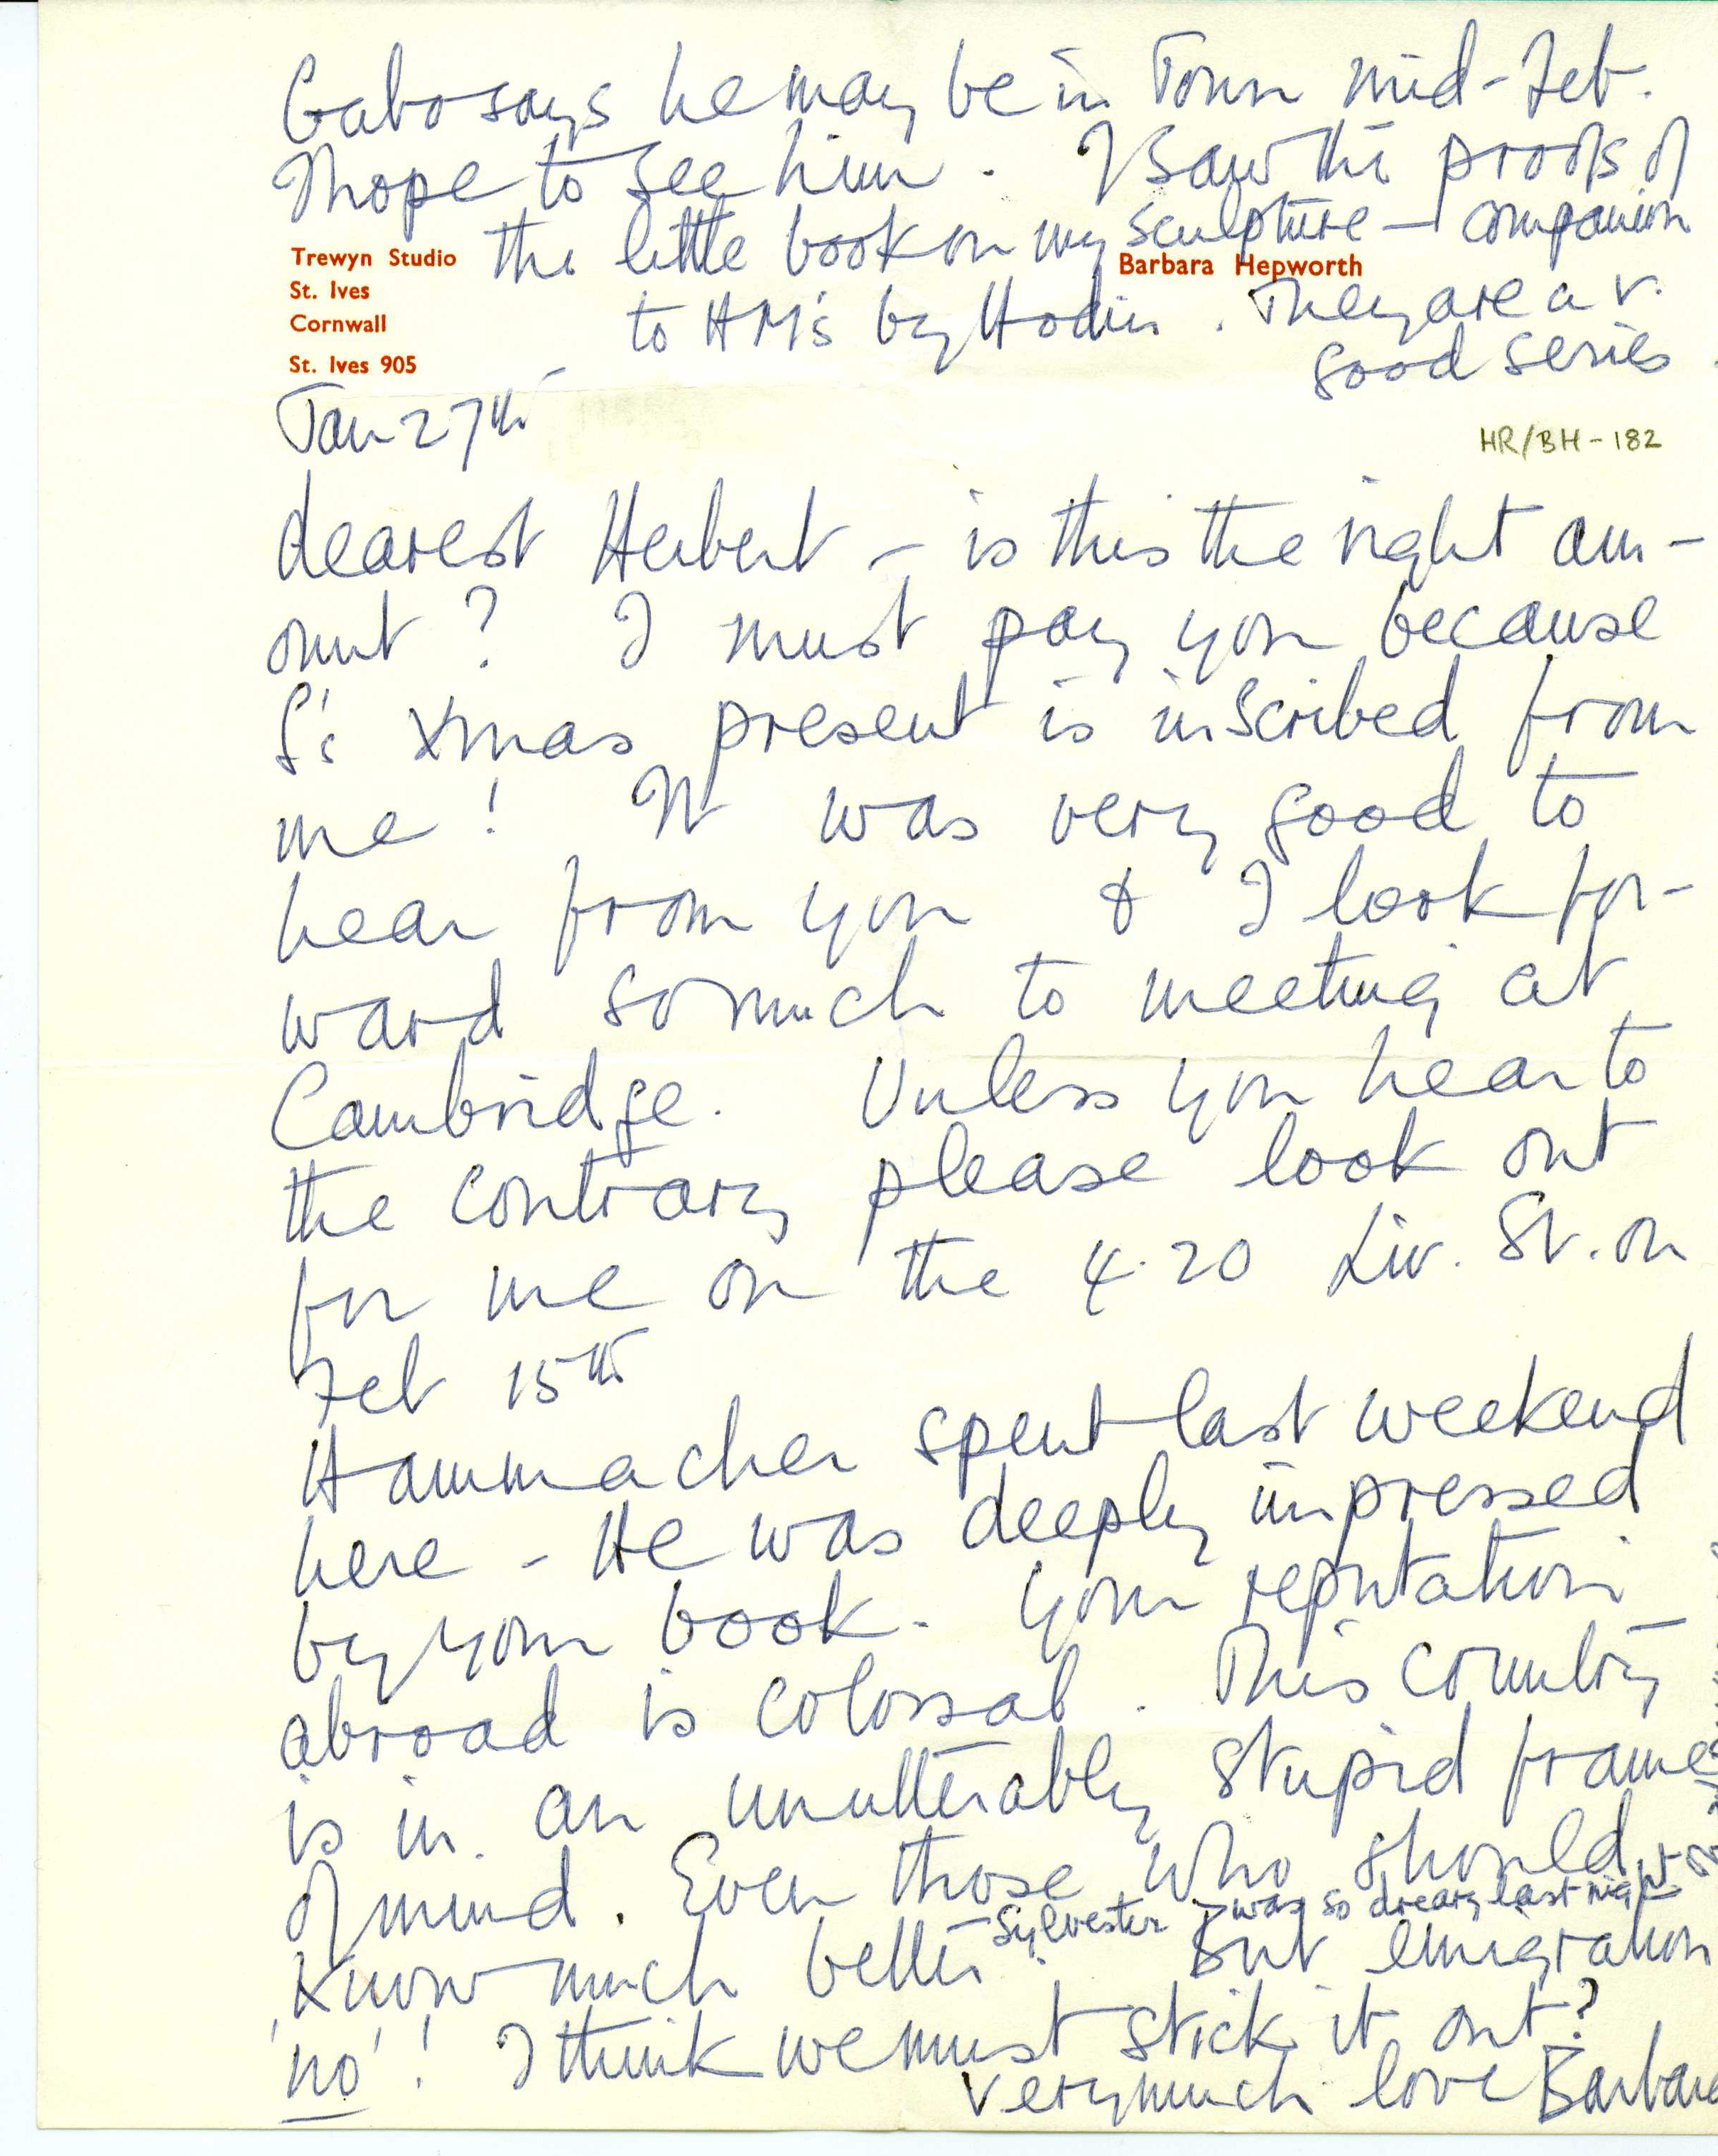 Gabo says he may be in Town mid-Feb.
I hope to see him. I saw the proofs of
the little book on my sculpture — companion
to HM's by Hodin. They are a v.
good series.
Trewyn Studio
St. Ives
Cornwall
St. Ives 905
Barbara Hepworth
Jan 27th
HR/BH-182
dearest Herbert – is this the right am-
ount? I must pay you because
S's Xmas present is inscribed from
me! It was very good to
hear from you & I look for-
ward so much to meeting at
Cambridge. Unless you hear to
the contrary please look out
for me on the 4.20 Liv. St. on
Feb 15th
Hammacher spent last weekend
here – He was deeply impressed
by your book. Your reputation
abroad is colossal. This country
is in an unutterably stupid frame
of mind. Even those who should
Sylvester was so dreary last night
know much better. But emigration
'no'! I think we must stick it out?
Very much love Barbara